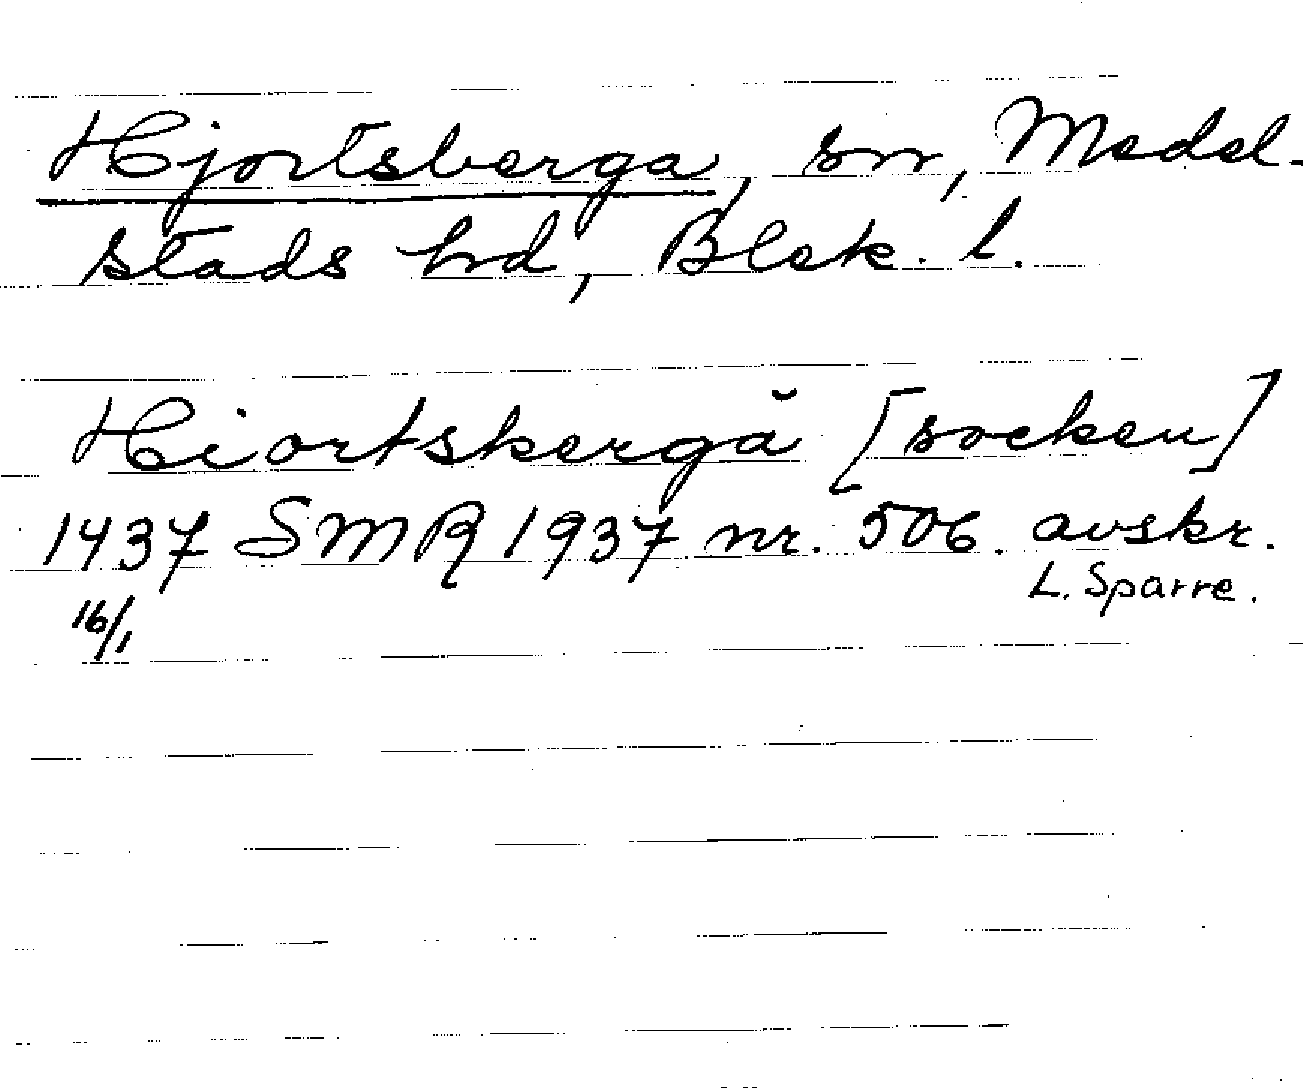 Hjortsberga, sn, Medel-
stads hd,Blek. l.
Hiortskergă [socken]
1437 SMR 1937 nr. 506. avskr.
L. Sparre.
16/1